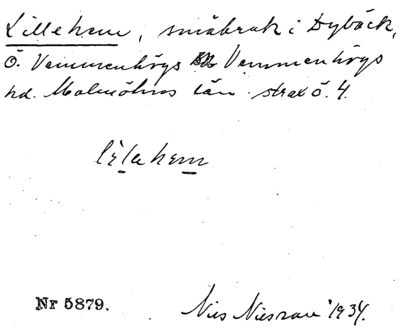 Lillehem, småbruk i Dybäck,
Ö. Vemmenhögs sn Vemmenhögs
hd. Malmöhus län. strax ö. 4.
lilahem
Nr 5879.
Nils Nilsson 1934.